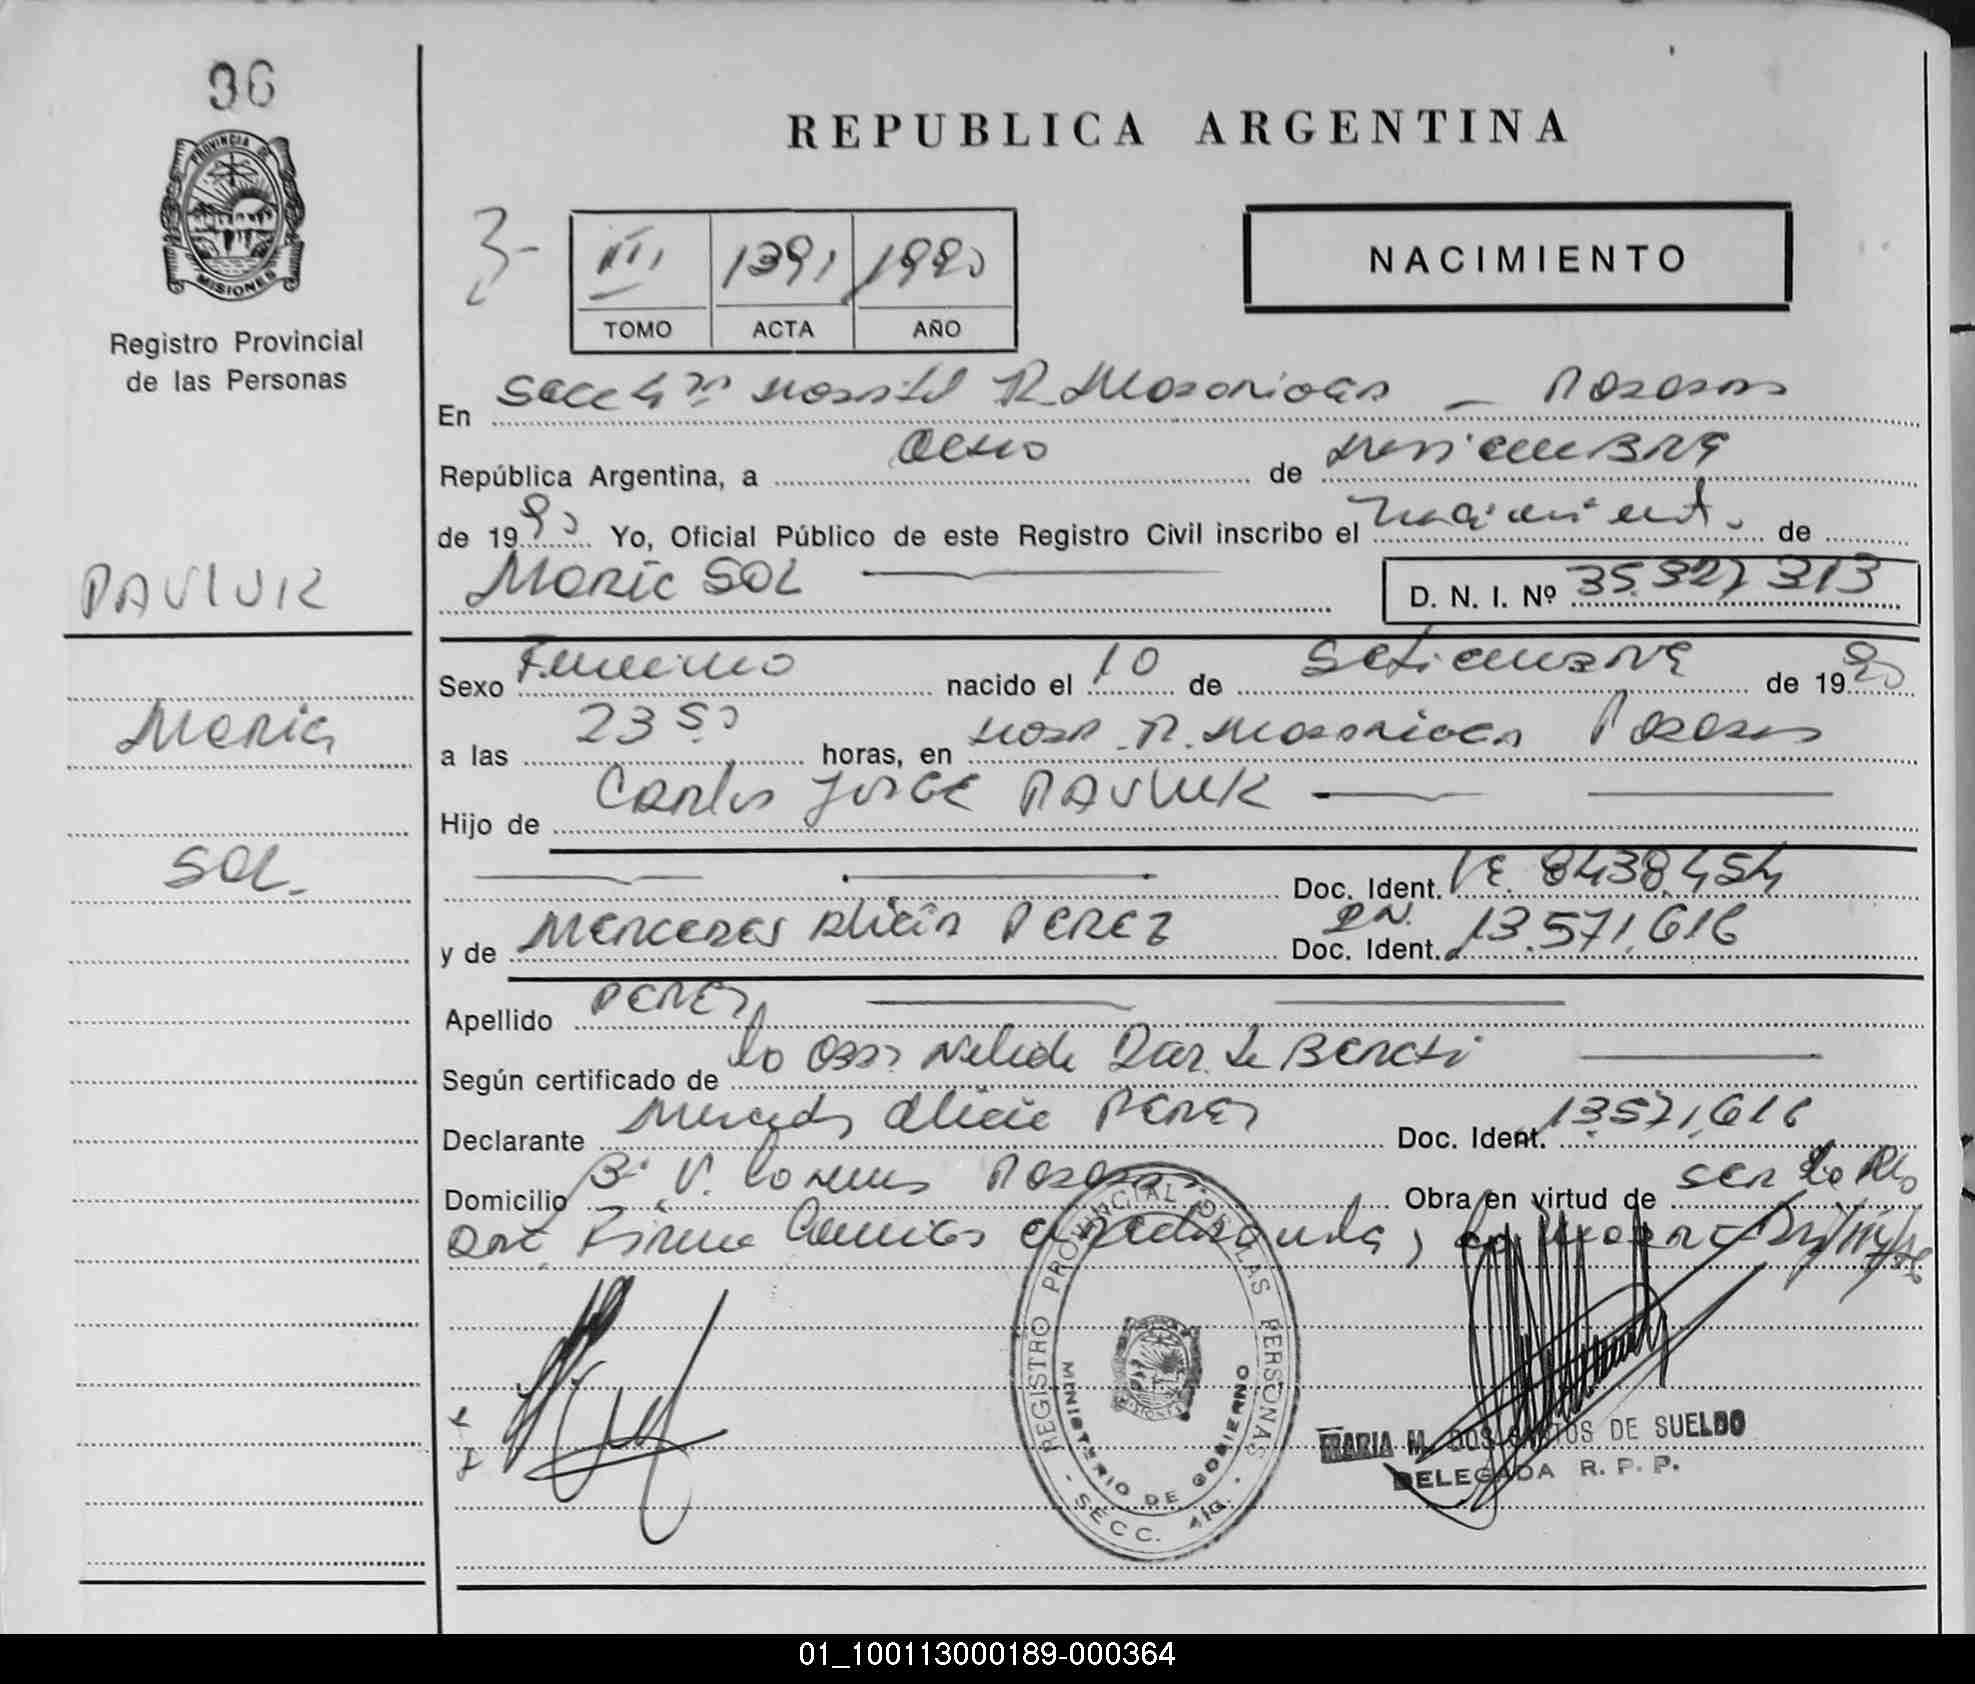 96
PROVINCIA DE
MISIONES
Registro Provincial
de las Personas
REPUBLICA ARGENTINA
3-
III 1391 1990
TOMO ACTA AÑO
NACIMIENTO
En Secc 4ta R. Posadas
República Argentina, a Ocho de
de 1990 Yo, Oficial Público de este Registro Civil inscribo el nacimiento de
PAVLUK
Maria SOL D. N. I. Nº 35.327 313
Sexo Femenino nacido el 10 de Setiembre de 1990
Maria
a las 23 50 horas, en Hosp. R. Posadas
Hijo de Carlos Jorge PAVLUK
SOL.
Doc. Ident. LE. 8438.454
y de Mercedes Alicia PEREZ Doc. Ident. DN. 13.571.616
Apellido PEREZ
Según certificado de la Obst Nelida
Declarante Mercedes Alicia PEREZ Doc. Ident. 13.571.616
Domicilio Bº V. Posadas Obra en virtud de ser la
Firma
REGISTRO PROVINCIAL DE LAS PERSONAS
MINISTERIO DE GOBIERNO
- SECC. 4ta. -
MARIA M. DOS SANTOS DE SUELDO
DELEGADA R. P. P.
01_100113000189-000364